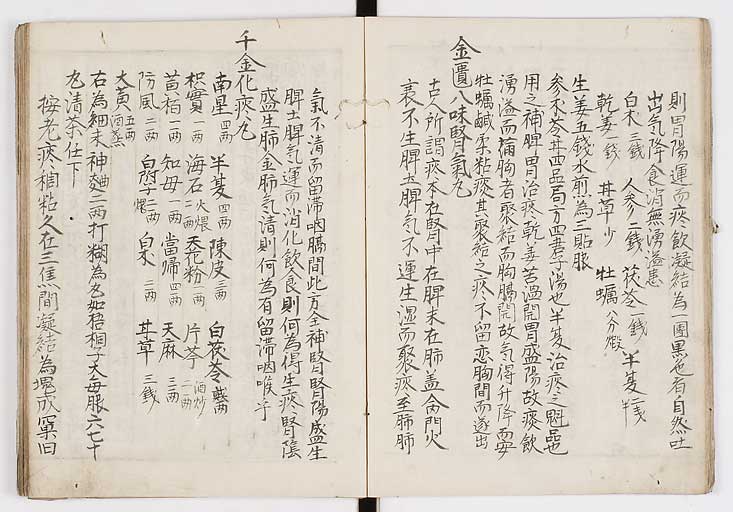 則胃陽運而痰飲凝結為一團黑也者自然吐
出气降食消無湧溢患
白朮 三錢 人參 二錢 茯苓 一錢 半夏
乾姜 一錢 甘草 少 牡蠣 八分煅
生姜五錢水煎為三貼服
參朮苓甘四品局方四君子湯也半夏治痰之魁也
用之補脾胃治痰乾姜苦溫開胃盛陽故痰飲
湧溢而痛胸者聚結而胸膈開故气得升降
牡蠣鹹柔粘痰其聚結之痰不留恋胸間而遂出
金匱八味腎氣丸
古人所謂痰本在腎中在脾末在肺蓋命門火
衰不生脾土脾气不運生濕而聚痰至肺肺
氣不清而留滯咽膈間此方全補腎腎陽盛生
脾土脾气運而消化飲食則何為得生痰腎陰
盛生肺金肺气清則何為有留滯咽喉乎
千金化痰丸
南星 四兩 半夏 四兩 陳皮 三兩 白茯苓
枳實 一兩 海石 二兩 火煅 天花粉 二兩 片芩 二兩 酒炒
黃栢 一兩 知母 一兩 當帰 四兩 天麻 三兩
防風 二兩 白附子 二兩 煨 白朮 二兩 甘草 三錢
大黃 五兩 酒蒸
右為細末神麯二兩打糊為丸如梧桐子大每服六七十
丸清茶任下
按老痰稠粘久在三焦間凝結為塊成窠臼